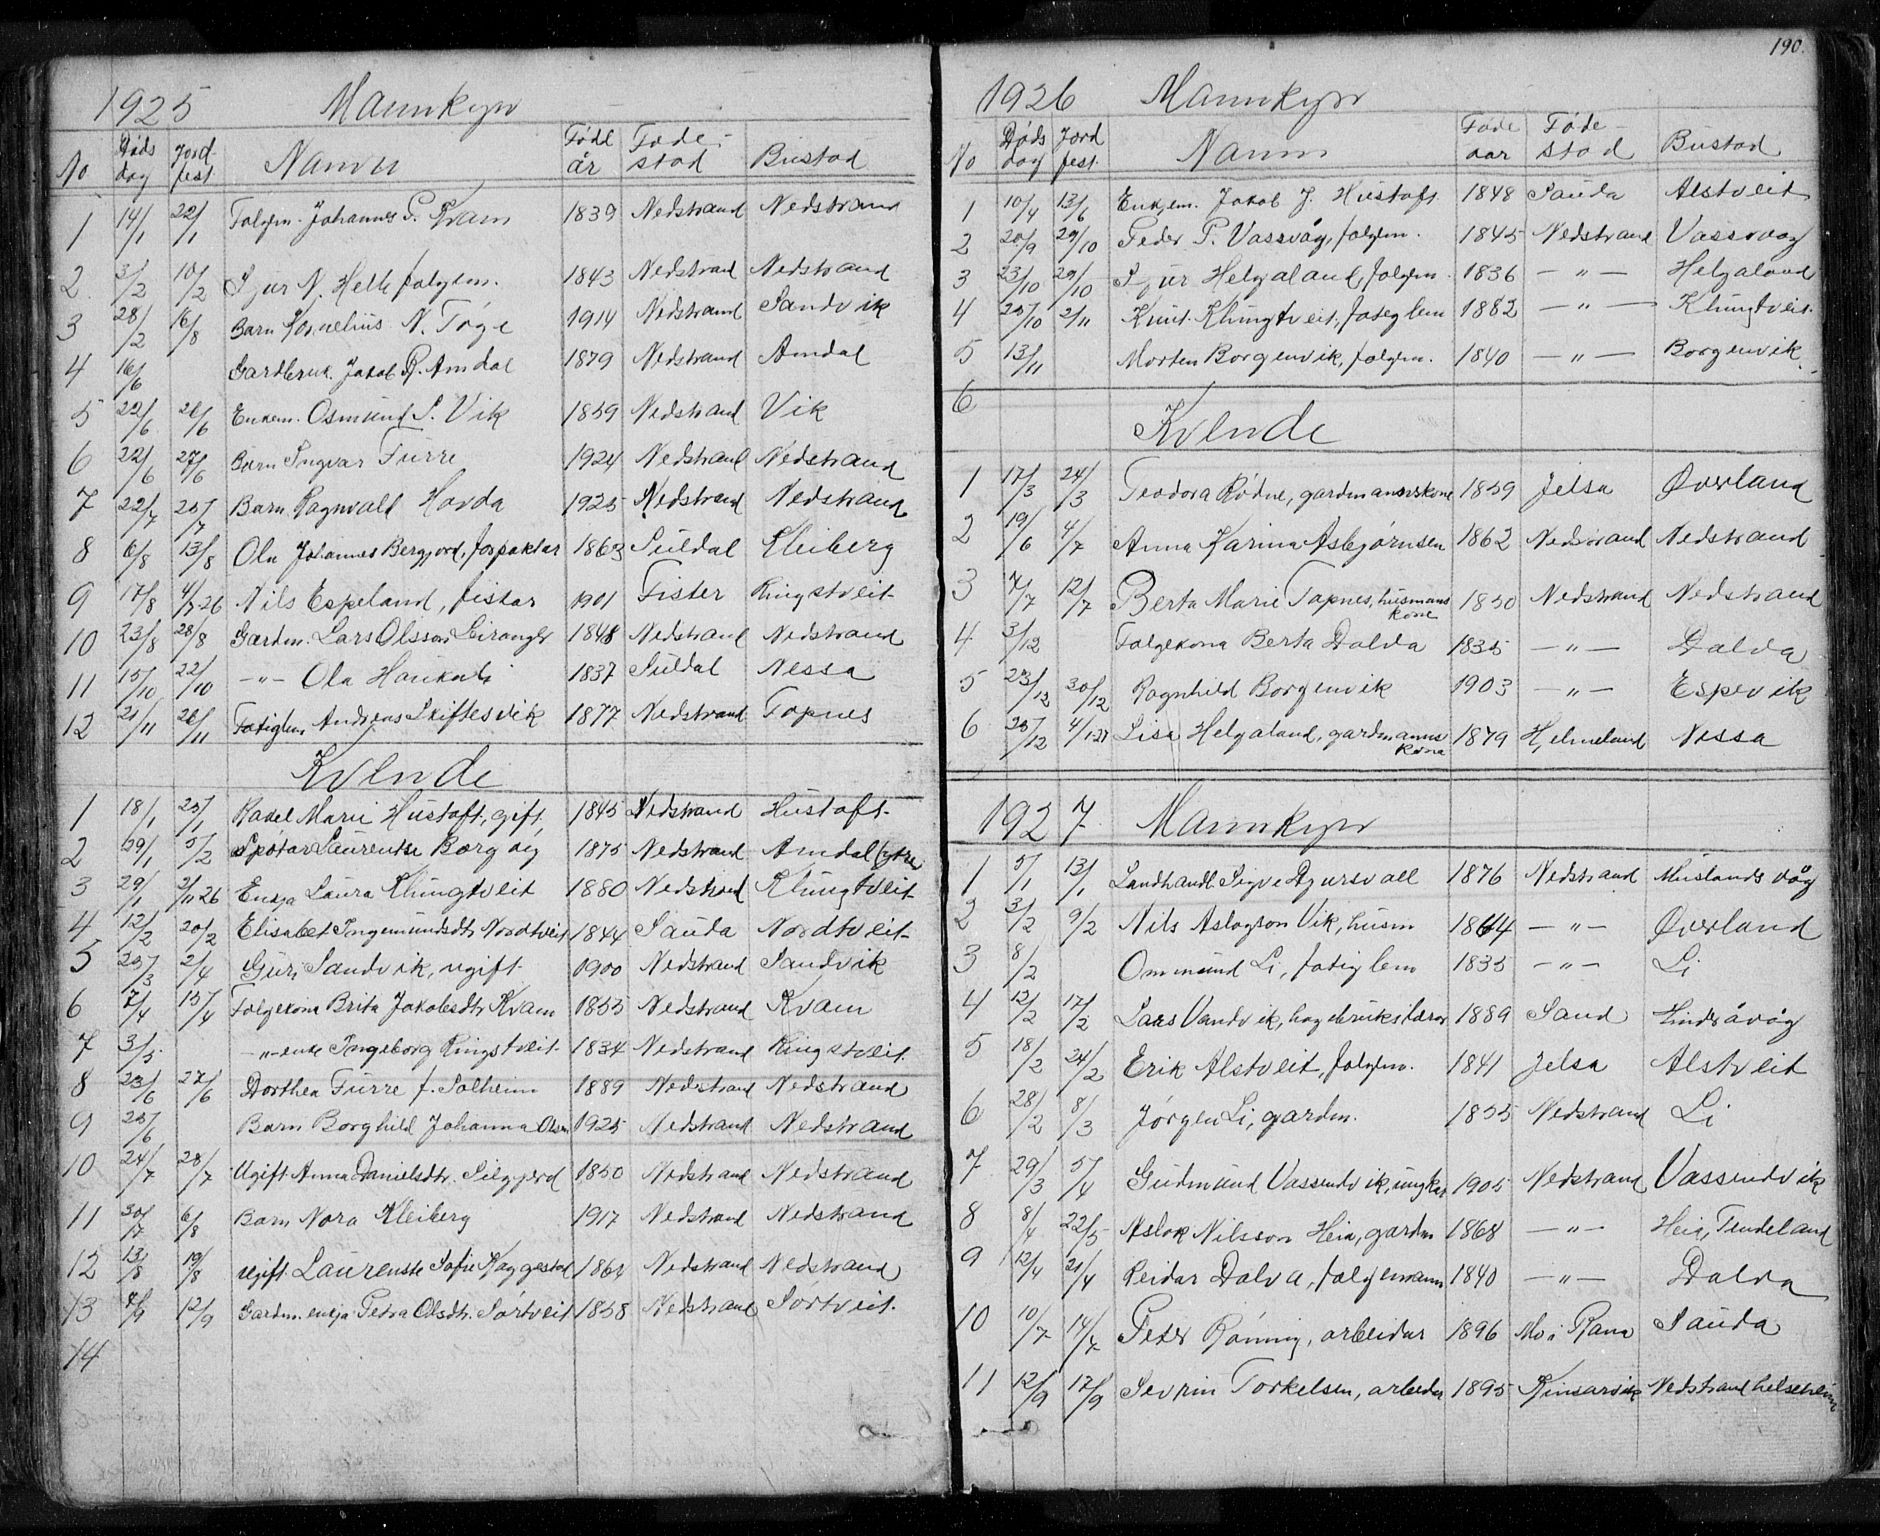 1925 Mannkyn
No Døds dag Jord fest Namn Føde år Føde- stad Bustad
1 14/1 22/1 Folgm. Johannes P. Kvam 1839 Nedstrand Nedstrand
2 3/2 10/2 Sjur N. Helle folgem. 1843 Nedstrand Nedstrand
3 28/2 16/8 Barn Kornelius N. Tøge 1914 Nedstrand Sandvik
4 16/6 Gardbruk. Jakob R. Amdal 1879 Nedstrand Amdal
5 22/6 26/6 Enkem. Osmund S. Vik 1859 Nedstrand Vik
6 22/6 27/6 Barn Ingvar Furre 1924 Nedstrand Nedstrand
7 22/7 25/7 Barn Ragnvald Hovda 1925 Nedstrand Nedstrand
8 6/8 13/8 Ola Johannes Bergjord, Inspektør 1863 Suldal Kleiberg
9 17/8 4/7 26 Nils Espeland, fiskar 1901 Fister Ringstveit
10 23/8 28/8 Gardm. Lars Olsson Leiranger 1848 Nedstrand Nedstrand
11 15/10 22/10 -"- Ola Haukali 1837 Suldal Nessa
12 21/11 26/11 Fatiglem Andreas Skiftesvik 1877 Nedstrand Tapnes
Kvende
1 18/1 25/1 Rakel Marie Hustoft, gift 1845 Nedstrand Hustoft
2 29/1 5/2 Laurentse Borgøy 1875 Nedstrand Amdal (ytre
3 29/1 2/11 26 Enkja Laura Klungtveit 1880 Nedstrand Klungtveit
4 12/2 20/2 Elisabet Ingemundsdtr Nordtveit 1844 Sauda Nordtveit
5 25/3 2/4 Guri Sandvik, ugift 1900 Nedstrand Sandvik
6 7/4 15/4 Folgekona Brita Jakobsdtr Kvam 1853 Nedstrand Kvam
7 3/5 -"- enke Ingeborg Ringstveit 1834 Nedstrand Ringstveit
8 23/6 27/6 Dorthea Furre f. Solheim 1889 Nedstrand Nedstrand
9 25/6 Barn Borghild Johanna Olsen 1925 Nedstrand Nedstrand
10 24/7 28/7 Ugift Anna Danielsdtr. Selgjerd 1850 Nedstrand Nedstrand
11 30/7 6/8 Barn Nora Kleiberg 1917 Nedstrand Nedstrand
12 13/8 19/8 ugift Laurentse Sofie Kaggestad 1864 Nedstrand Nedstrand
13 8/9 12/9 Gardm. enkja Petra Olsdtr. Sørtveit 1858 Nedstrand Sørtveit
14
190.
1926 Mannkyn
No Døds dag Jord fest Namn Føde aar Føde- stad Bustad
1 10/4 13/6 Enkjem. Jakob J. Hustoft 1848 Sauda Alstveit
2 20/9 29/10 Peder P. Vassvåg, folgem. 1845 Nedstrand Vassvåg
3 23/10 29/10 Sjur Helgaland, folgem. 1836 -"- Helgaland
4 25/10 2/11 Knut Klungtveit, fatiglem 1882 -"- Klungtveit
5 13/11 Morten Borgenvik, folgem. 1840 -"- Borgenvik
6
Kvende
1 17/3 24/3 Teodora Rødne, gardmannskone 1859 Jelsa Øverland
2 19/6 4/7 Anna Karina Asbjørnsen 1862 Nedstrand Nedstrand
3 7/7 12/7 Berta Marie Tapnes, husmans kone 1850 Nedstrand Nedstrand
4 3/12 Folgekona Berta Dalva 1835 -"- Dalva
5 23/12 30/12 Ragnhild Borgenvik 1903 -"- Espevik
6 25/12 4/1 27 Lisa Helgaland, gardmanns kona 1879 Hjelmeland Nessa
1927 Mannkyn
1 5/1 13/1 Landhandl. Sigve Djursvoll 1876 Nedstrand Muslandsvåg
2 3/2 9/2 Nils Aslagson Vik, husm 1864 -"- Øverland
3 8/2 Ommund Li, fatiglem 1835 -"- Li
4 12/2 17/2 Lars Vandvik, hagebrukslærar 1889 Sand Hindsåvåg
5 18/2 24/2 Erik Alstveit, folgem. 1841 Jelsa Alstveit
6 28/2 8/3 Jørgen Li, gardm. 1855 Nedstrand Li
7 29/3 5/4 Gudmund Vassendvik, ungkar 1905 Nedstrand Vassendvik
8 8/4 22/5 Aslak Nilsson Heia, gardm 1868 -"- Heia, Tendeland
9 12/4 21/4 Reidar Dalva, folgemann 1840 -"- Dalva
10 10/7 14/7 Peder Rønning, arbeidar 1896 Mo i Rana Sauda
11 12/9 17/9 Sevrin Torkelsen, arbeidar 1895 Kinsarvik Nedstrand helseheim